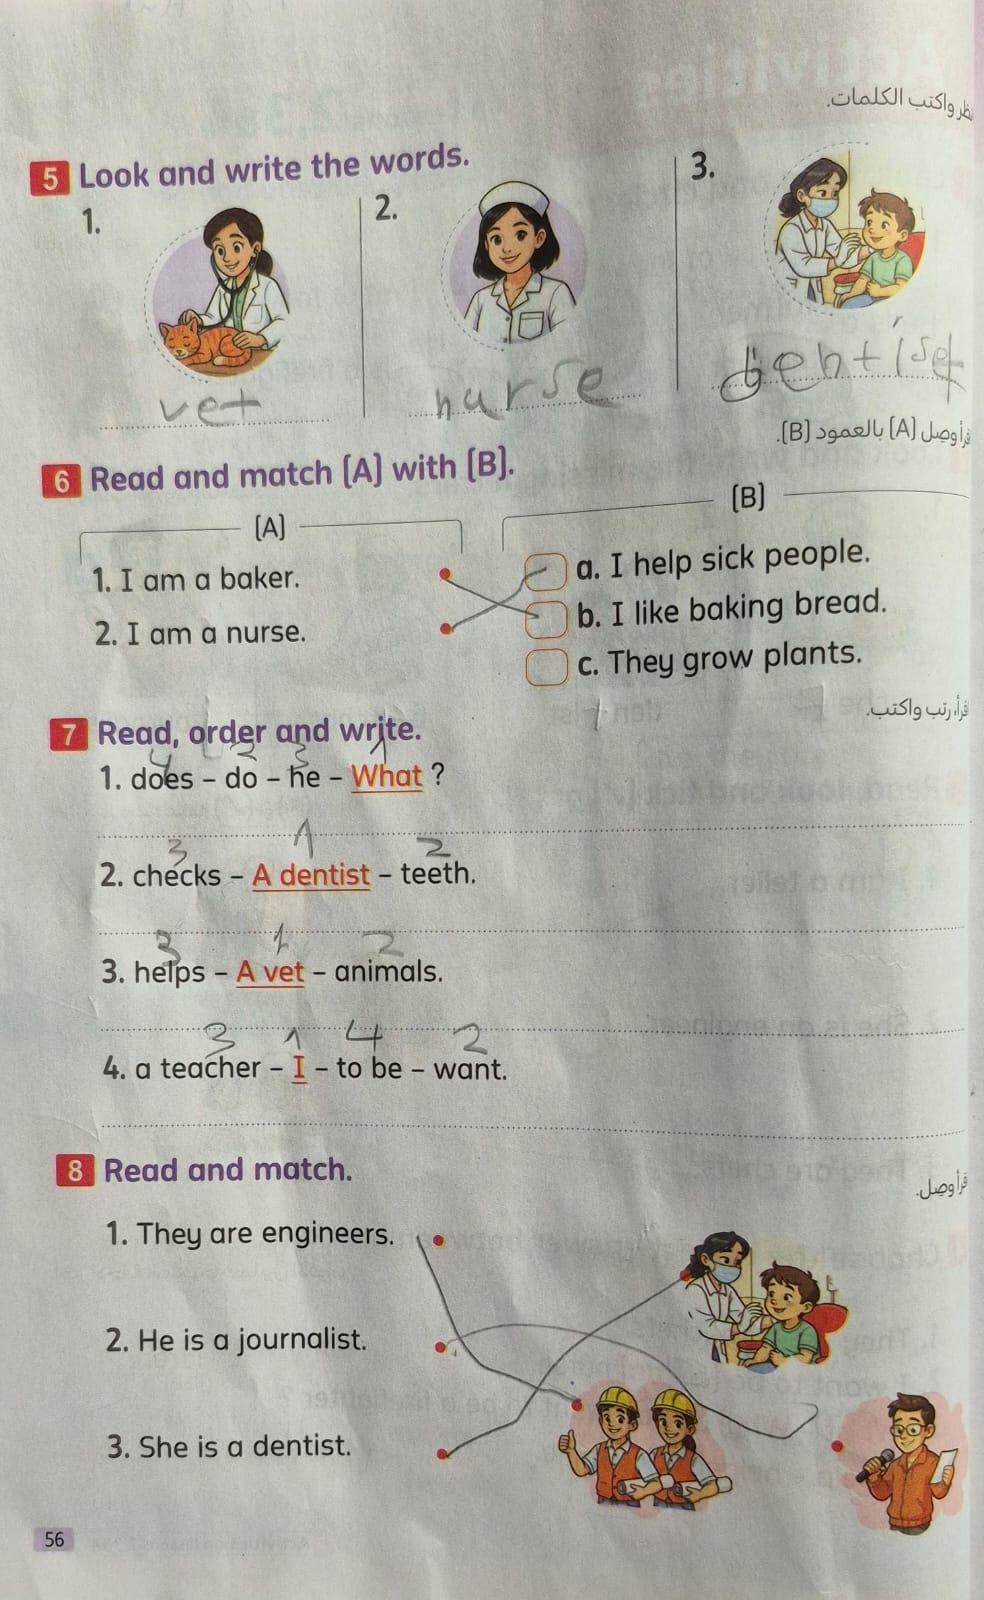 نظر واكتب الكلمات.
5 Look and write the words.
1.
2.
3.
vet
nurse
dentist
قرأ وصل (A) بالعمود (B).
6 Read and match (A) with (B).
(A)
(B)
1. I am a baker.
a. I help sick people.
2. I am a nurse.
b. I like baking bread.
c. They grow plants.
قرأ، رتب واكتب.
7 Read, order and write.
4 2 3 1
1. does – do – he – What ?
3 1 2
2. checks – A dentist – teeth.
3 1 2
3. helps – A vet – animals.
3 1 4 2
4. a teacher – I – to be – want.
8 Read and match.
قرأ وصل.
1. They are engineers.
2. He is a journalist.
3. She is a dentist.
56